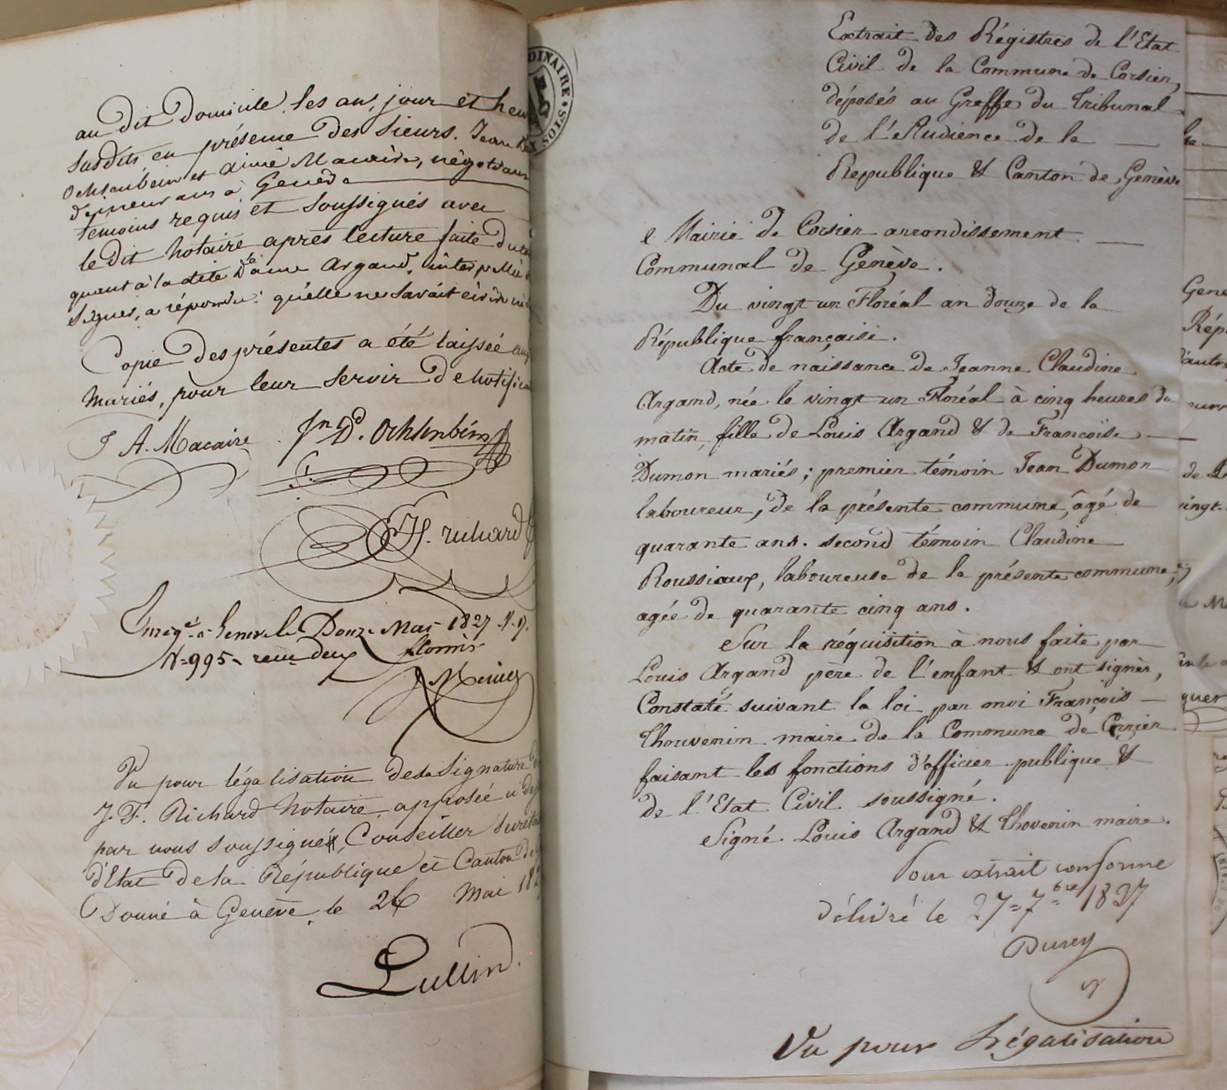 au dit Domicile, les an, jour et heu
susdits en présence des Sieurs. Jean
Ochsenbein et Aimé Macaire, négotians
demeurans à Genève
témoins requis et soussignés avec
le dit Notaire après lecture faite du
quant à la dite Dame Argand, interpellée
signer, a répondu qu'elle ne savait écrire ni
Copie des présentes a été laissée aux
Mariés, pour leur servir de Notifica
J A. Macaire Jn Dd. Ochsenbein
J. F. richard
Enregé à Genève le Douze Mai 1827
N=995= reçu deux florins
Vu pour légalisation de la Signature
J. F. Richard Notaire apposée
par nous soussigné, Conseiller Secrétai
d'Etat de la République et Canton de
Donné à Genève, le 26 Mai 182
Lullin.
DINAIRE
Extrait des Régistres de l'Etat
Civil de la Commune de Corsier,
déposés au Greffe du Tribunal
de l'Audience de la
République & Canton de Genève
Mairie de Corsier arrondissement
Communal de Genève.
Du vingt un Floréal an douze de la
République française.
Acte de naissance de Jeanne Claudine
Argand, née le vingt un Floréal à cinq heures du
matin, fille de Louis Argand & de Françoise
Dumon mariés; premier témoin Jean Dumon
laboureur, de la présente commune, âgé de
quarante ans. second témoin Claudine
Roussiaux, laboureuse de la présente commune,
agée de quarante cinq ans.
Sur la réquisition à nous faite par
Louis Argand père de l'enfant & ont signés,
Constaté suivant la loi par moi François
Thouvenin maire de la Commune de Corsier
faisant les fonctions d'officier publique &
de l'Etat Civil soussigné.
Signé Louis Argand & Thovenin maire.
Pour extrait conforme
délivré le 27=7bre 1827
Vu pour Légalisation